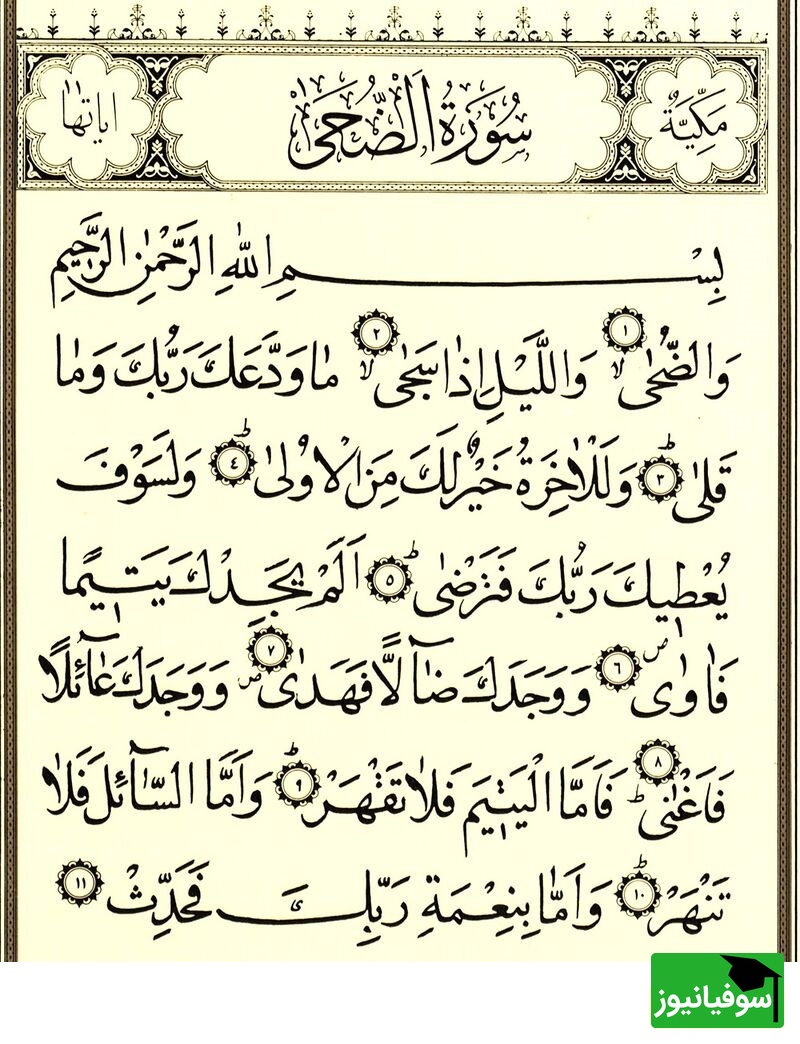 مَكِّيَّةٌ
سُورَةُ الضُّحىٰ
اٰیاتها ١١
بِسْمِ اللّٰهِ الرَّحْمٰنِ الرَّحِيمِ
وَالضُّحٰى ﴿١﴾ وَاللَّيْلِ اِذٰا سَجٰى ﴿٢﴾ مٰا وَدَّعَكَ رَبُّكَ وَمٰا
قَلٰى ﴿٣﴾ وَلَلْاٰخِرَةُ خَيْرٌ لَكَ مِنَ الْاُولٰى ﴿٤﴾ وَلَسَوْفَ
يُعْطِيكَ رَبُّكَ فَتَرْضٰى ﴿٥﴾ اَلَمْ يَجِدْكَ يَتِيمًا
فَاٰوٰى ﴿٦﴾ وَوَجَدَكَ ضٰٓالًّا فَهَدٰى ﴿٧﴾ وَوَجَدَكَ عٰٓائِلًا
فَاَغْنٰى ﴿٨﴾ فَاَمَّا الْيَتِيمَ فَلٰا تَقْهَرْ ﴿٩﴾ وَاَمَّا السّٰٓائِلَ فَلٰا
تَنْهَرْ ﴿١٠﴾ وَاَمّٰا بِنِعْمَةِ رَبِّكَ فَحَدِّثْ ﴿١١﴾
سوفیانیوز